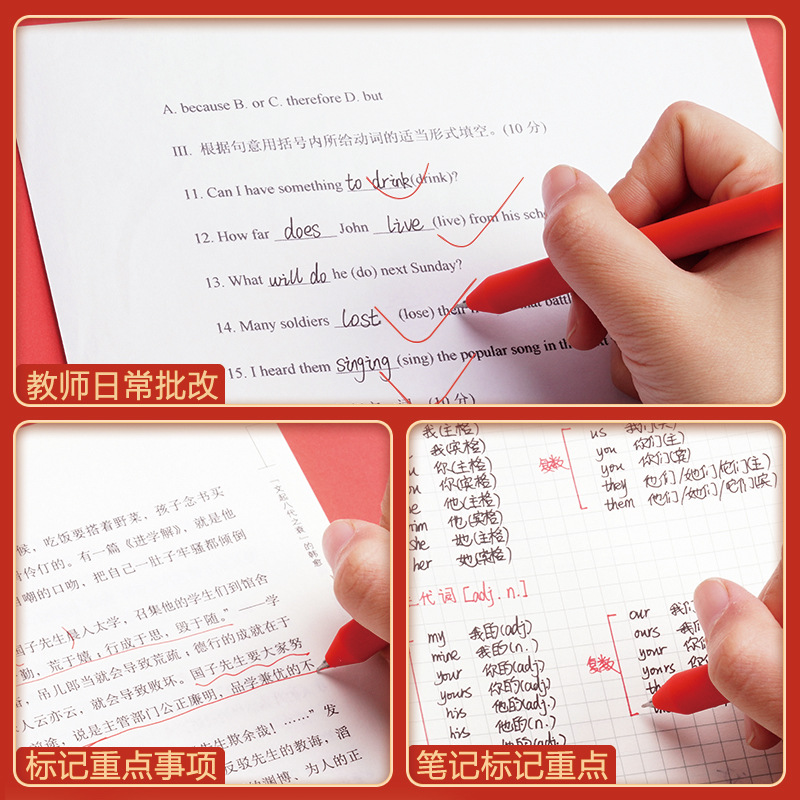 A. because B. or C. therefore D. but
III. 根据句意用括号内所给动词的适当形式填空。(10 分)
11. Can I have something to drink (drink)?
12. How far does John live (live) from his
13. What will do he (do) next Sunday?
14. Many soldiers lost (lose)
15. I heard them singing (sing) the popular song in
教师日常批改
“文起八代之衰”的韩愈
候，吃饭要搭着野菜，孩子念书买
伶仃的。有一篇《进学解》，就是他
自嘲的口吻，把自己一肚子牢骚都倾倒
国子先生晨入太学，召集他的学生们到馆舍
勤，荒于嬉；行成于思，毁于随。”——学
吊儿郎当就会导致荒疏；德行的成就在于
人云亦云，就会导致败坏。国子先生要大家努
说是主管部门公正廉明，品学兼优的不
先生欺余哉！……”发
反驳先生的教诲，滔
的渊博、为人的正
标记重点事项
我(主格)
我(宾格)
你(主格)
你(宾格)
他(主格)
他(宾格)
she 她(主格)
her 她(宾格)
复数
us
you 你们(主)
you 你们(宾)
they 他们/她们/它们(主)
them 他们/她们/它们(宾)
代词 [adj. n.]
my 我的(adj)
mine 我的(n.)
your 你的(adj)
yours 你的(adj.
his 他的(adj.
his 他的(n.)
他的(adj.)
复数
our
ours
your
yours
笔记标记重点